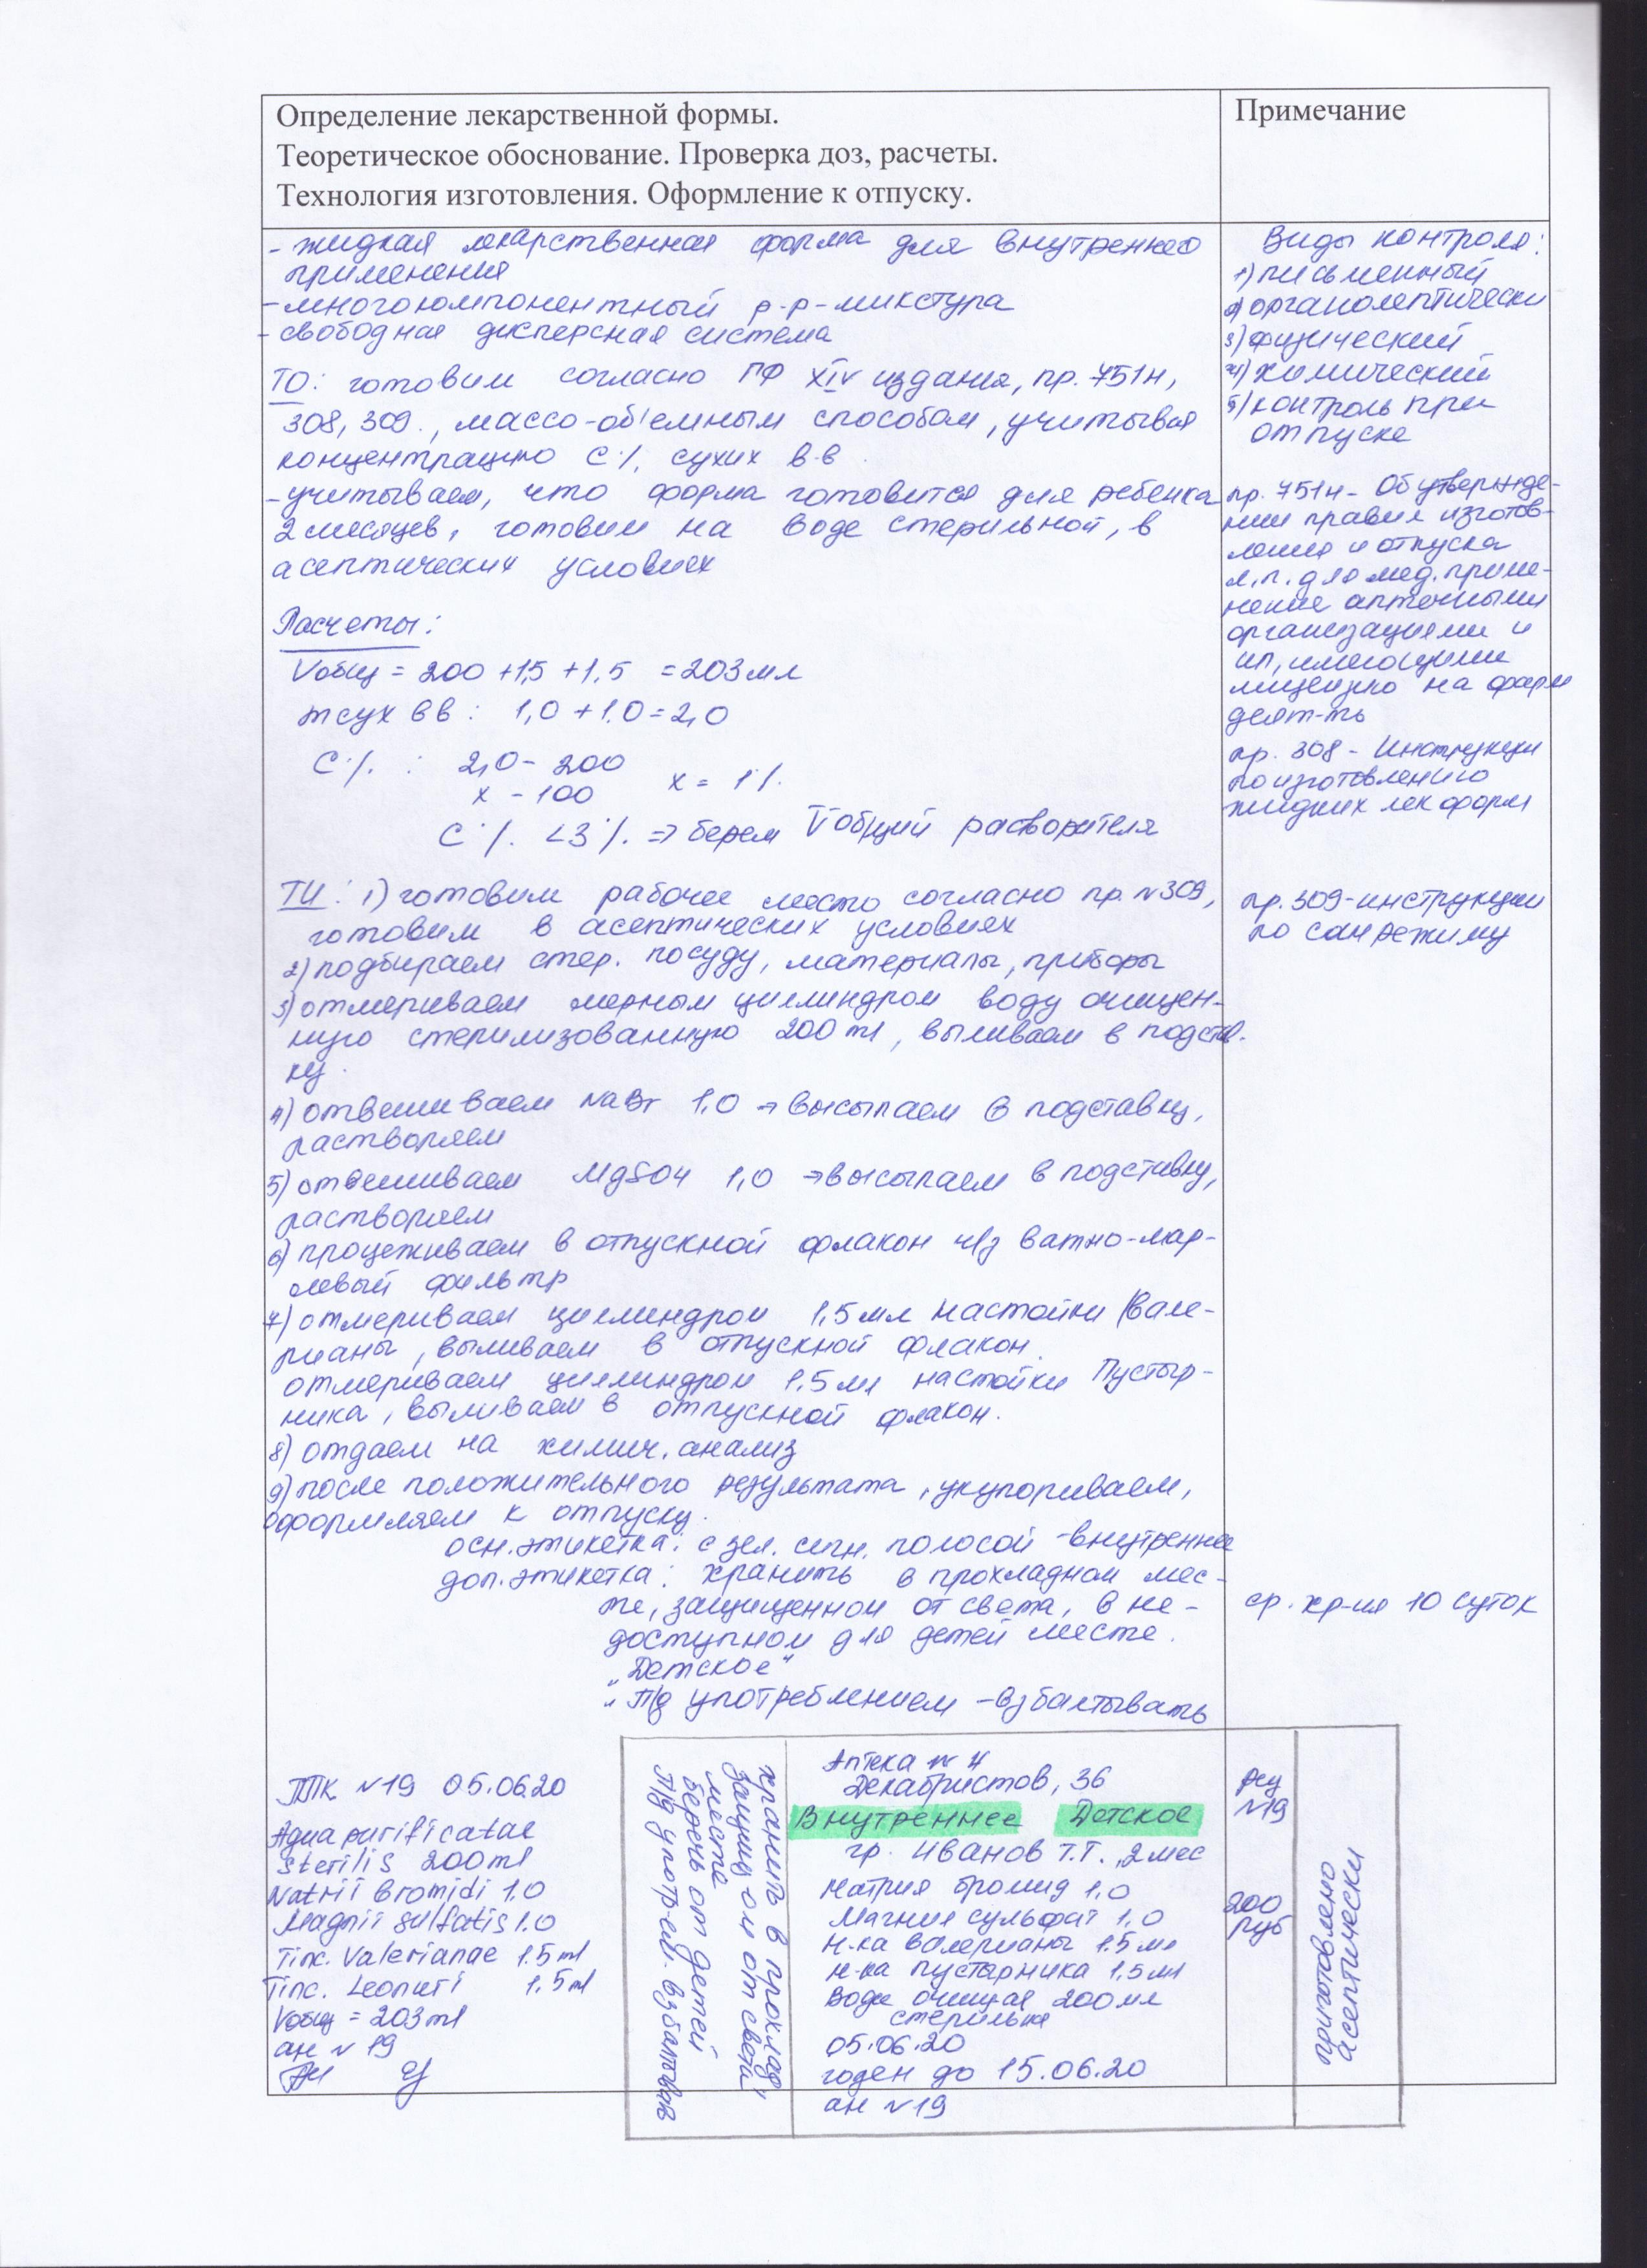 Определение лекарственной формы.
Теоретическое обоснование. Проверка доз, расчеты.
Технология изготовления. Оформление к отпуску.
Примечание
- жидкая лекарственная форма для внутреннего
применения
- многокомпонентный р-р-микстура
- свободная дисперсная система
ТО: готовим согласно ГФ XIV издания, пр. 751н,
308, 309., массо-объемным способом, учитывая
концентрацию С% сухих в-в.
- учитываем, что форма готовится для ребенка
2 месяцев, готовим на воде стерильной, в
асептических условиях
Расчеты:
Vобщ = 200 + 1,5 + 1,5 = 203 мл
m сух вв : 1,0 + 1.0 = 2,0
С% : 2,0 - 200
х - 100 х = 1%
С% < 3% => берем V общий растворителя
ТИ: 1) готовим рабочее место согласно пр. N309,
готовим в асептических условиях
2) подбираем стер. посуду, материалы, приборы
3) отмериваем мерным цилиндром воду очищен-
ную стерилизованную 200 ml, выливаем в подстав.
ку.
4) отвешиваем NaBr 1,0 → высыпаем в подставку,
растворяем
5) отвешиваем MgSO4 1,0 → высыпаем в подставку,
растворяем
6) процеживаем в отпускной флакон ч/з ватно-мар-
левый фильтр
7) отмериваем цилиндром 1,5 мл настойки Вале-
рианы, выливаем в отпускной флакон.
отмериваем цилиндром 1.5 мл настойки Пустыр-
ника, выливаем в отпускной флакон.
8) отдаем на химич. анализ
9) после положительного результата, укупориваем,
оформляем к отпуску.
осн. этикетка: с зел. сигн. полосой - внутреннее
доп. этикетка: хранить в прохладном мес-
те, защищенном от света, в не-
доступном для детей месте.
"Детское"
"П/д употреблением - взбалтывать
Виды контроля:
1) письменный
2) органолептически
3) физический
4) химический
5) контроль при
отпуске
пр. 751н - Об утвержде-
нии правил изготов-
ления и отпуска
л.п. для мед. приме-
нение аптечными
организациями и
ИП, имеющими
лицензию на фарм
деят-ть
пр. 308 - Инструкции
по изготовлению
жидких лек форм
пр. 309 - инструкции
по санрежиму
ср. хр-ия 10 суток
ППК N19 05.06.20
Aqua purificatae
sterilis 200 ml
Natrii bromidi 1.0
Magnii sulfatis 1.0
Tinc. Valerianae 1.5 ml
Tinc. Leonuri 1.5 ml
Vобщ = 203 ml
ан N 19
хранить в прохлад,
защищ ом от света
месте
беречь от детей
П/д употр-ем. взбалтывать
Аптека N 4
Декабристов, 36
Внутреннее Детское
гр. Иванов Т.Т., 2 мес
Натрия бромид 1,0
Магния сульфат 1,0
Н-ка валерианы 1.5 мл
Н-ка пустырника 1,5 мл
Вода очищая 200 мл
стерильна
05.06.20
годен до 15.06.20
ан N 19
N19
200
руб
приготовлено
асептически